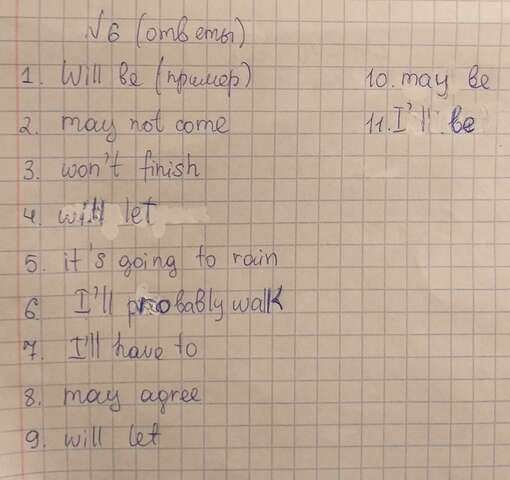 √6 (ответы)
1. Will be (пример)
2. may not come
3. won't finish
4. will let
5. it's going to rain
6. I'll probably walk
7. I'll have to
8. may agree
9. will let
10. may be
11. I'll be